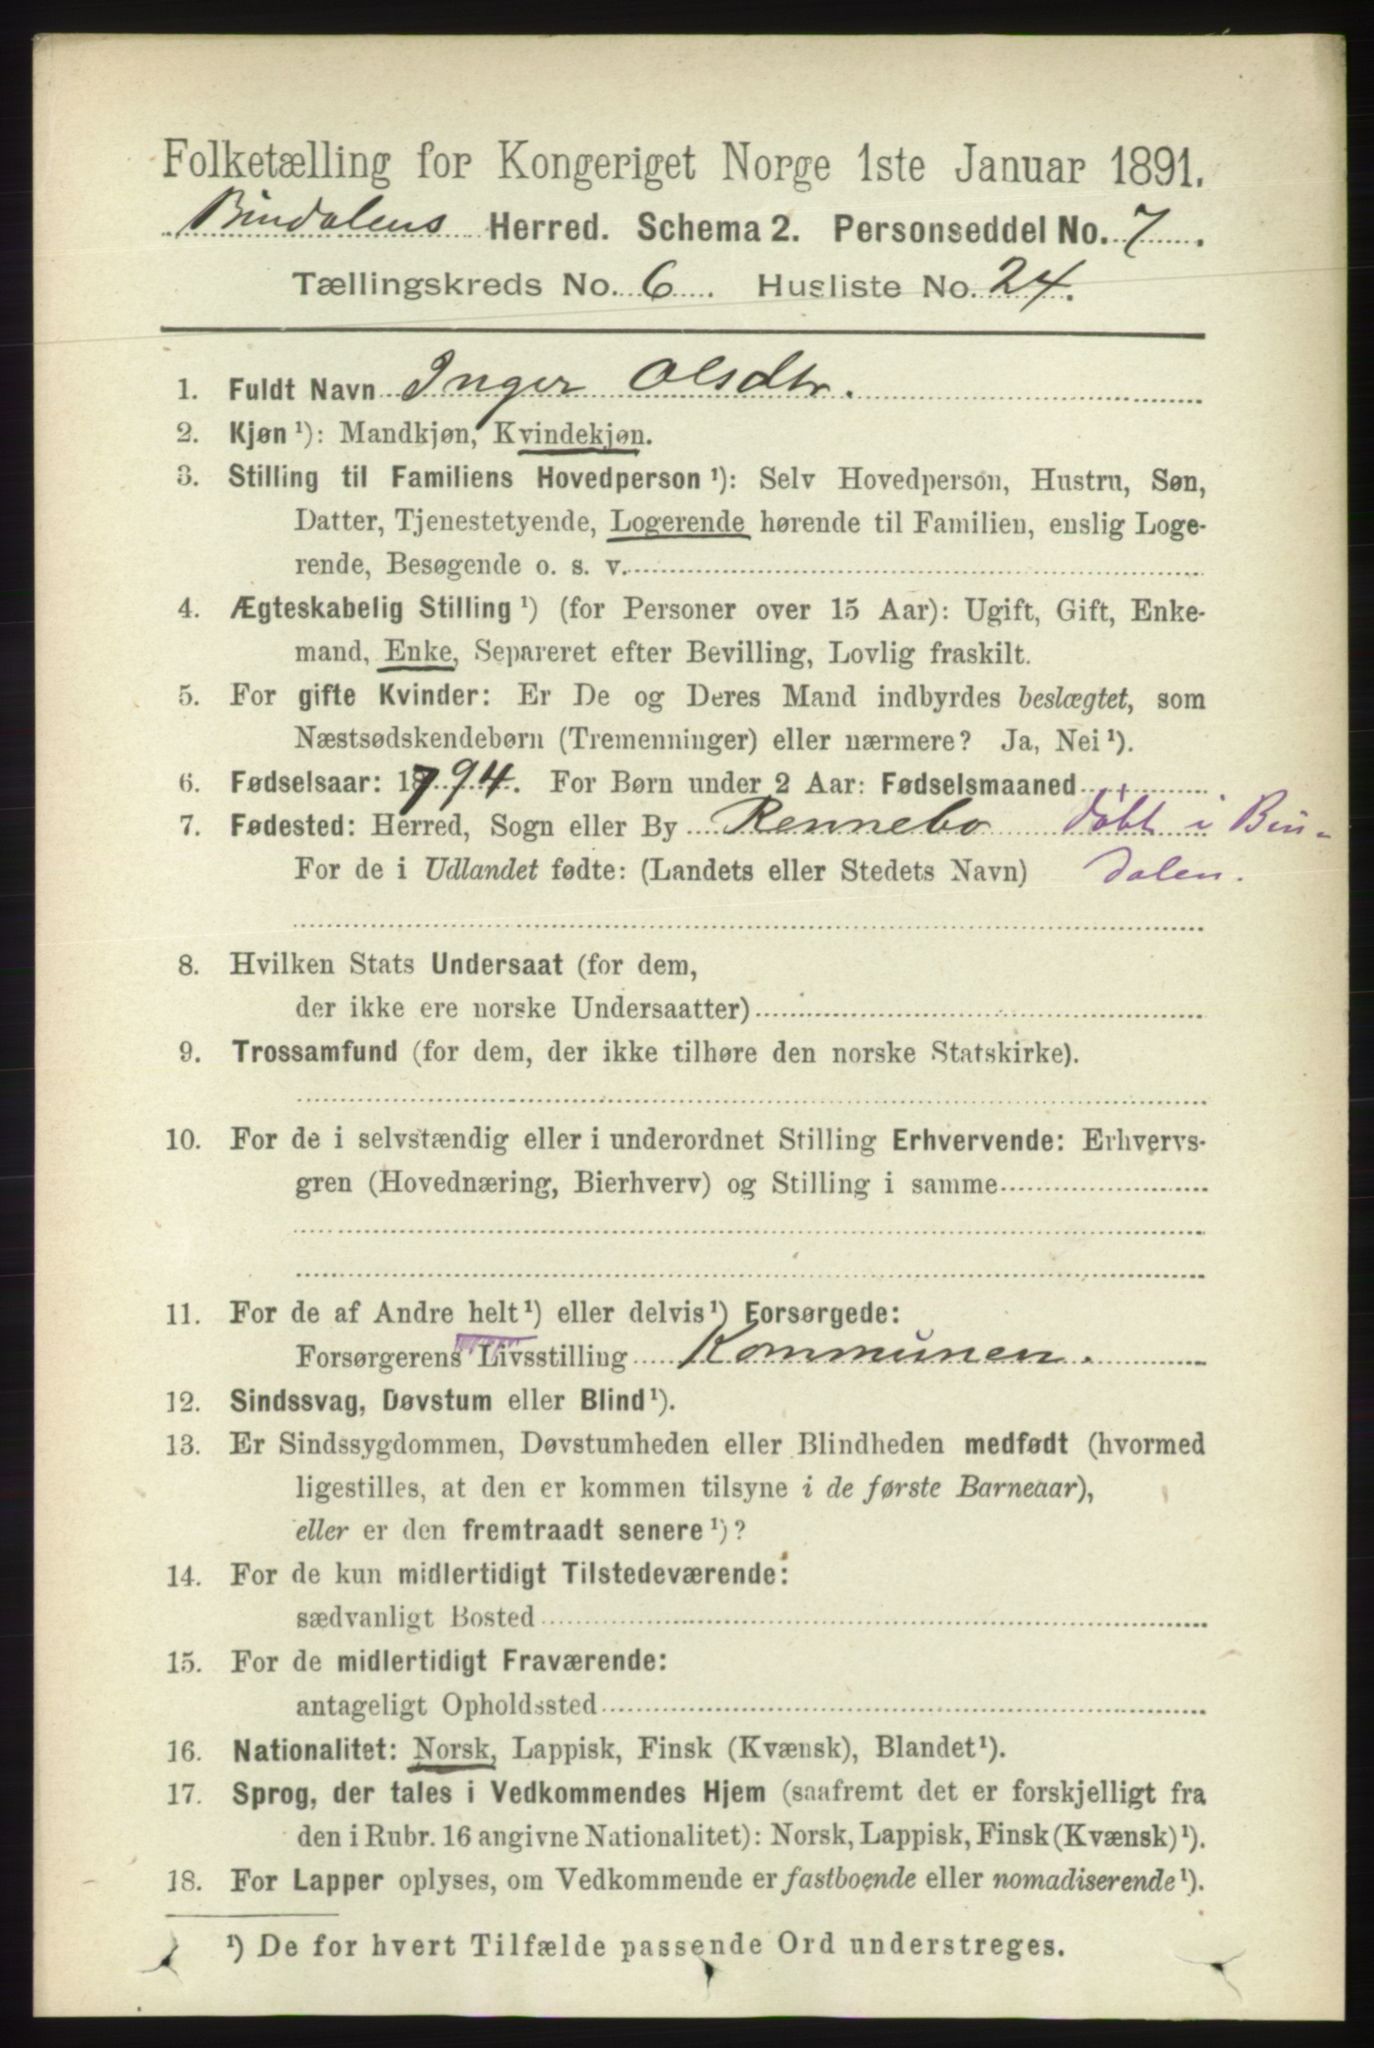 Folketælling for Kongeriget Norge 1ste Januar 1891.
Bindalens Herred. Schema 2. Personseddel No. 7.
Tællingskreds No. 6. Husliste No. 24.
1. Fuldt Navn Inger Olsdtr.
2. Kjøn ¹): Mandkjøn, Kvindekjøn.
3. Stilling til Familiens Hovedperson ¹): Selv Hovedperson, Hustru, Søn,
Datter, Tjenestetyende, Logerende hørende til Familien, enslig Loge-
rende, Besøgende o. s. v.
4. Ægteskabelig Stilling ¹) (for Personer over 15 Aar): Ugift, Gift, Enke-
mand, Enke, Separeret efter Bevilling, Lovlig fraskilt.
5. For gifte Kvinder: Er De og Deres Mand indbyrdes beslægtet, som
Næstsødskendebørn (Tremenninger) eller nærmere? Ja, Nei ¹).
6. Fødselsaar: 1794. For Børn under 2 Aar: Fødselsmaaned
7. Fødested: Herred, Sogn eller By Rennebo døbt i Bin-
For de i Udlandet fødte: (Landets eller Stedets Navn) dalen.
8. Hvilken Stats Undersaat (for dem,
der ikke ere norske Undersaatter)
9. Trossamfund (for dem, der ikke tilhøre den norske Statskirke).
10. For de i selvstændig eller i underordnet Stilling Erhvervende: Erhvervs-
gren (Hovednæring, Bierhverv) og Stilling i samme
11. For de af Andre helt ¹) eller delvis ¹) Forsørgede:
Forsørgerens Livsstilling Kommunen.
12. Sindssvag, Døvstum eller Blind ¹).
13. Er Sindssygdommen, Døvstumheden eller Blindheden medfødt (hvormed
ligestilles, at den er kommen tilsyne i de første Barneaar),
eller er den fremtraadt senere ¹)?
14. For de kun midlertidigt Tilstedeværende:
sædvanligt Bosted
15. For de midlertidigt Fraværende:
antageligt Opholdssted
16. Nationalitet: Norsk, Lappisk, Finsk (Kvænsk), Blandet ¹).
17. Sprog, der tales i Vedkommendes Hjem (saafremt det er forskjelligt fra
den i Rubr. 16 angivne Nationalitet): Norsk, Lappisk, Finsk (Kvænsk) ¹).
18. For Lapper oplyses, om Vedkommende er fastboende eller nomadiserende ¹).
¹) De for hvert Tilfælde passende Ord understreges.